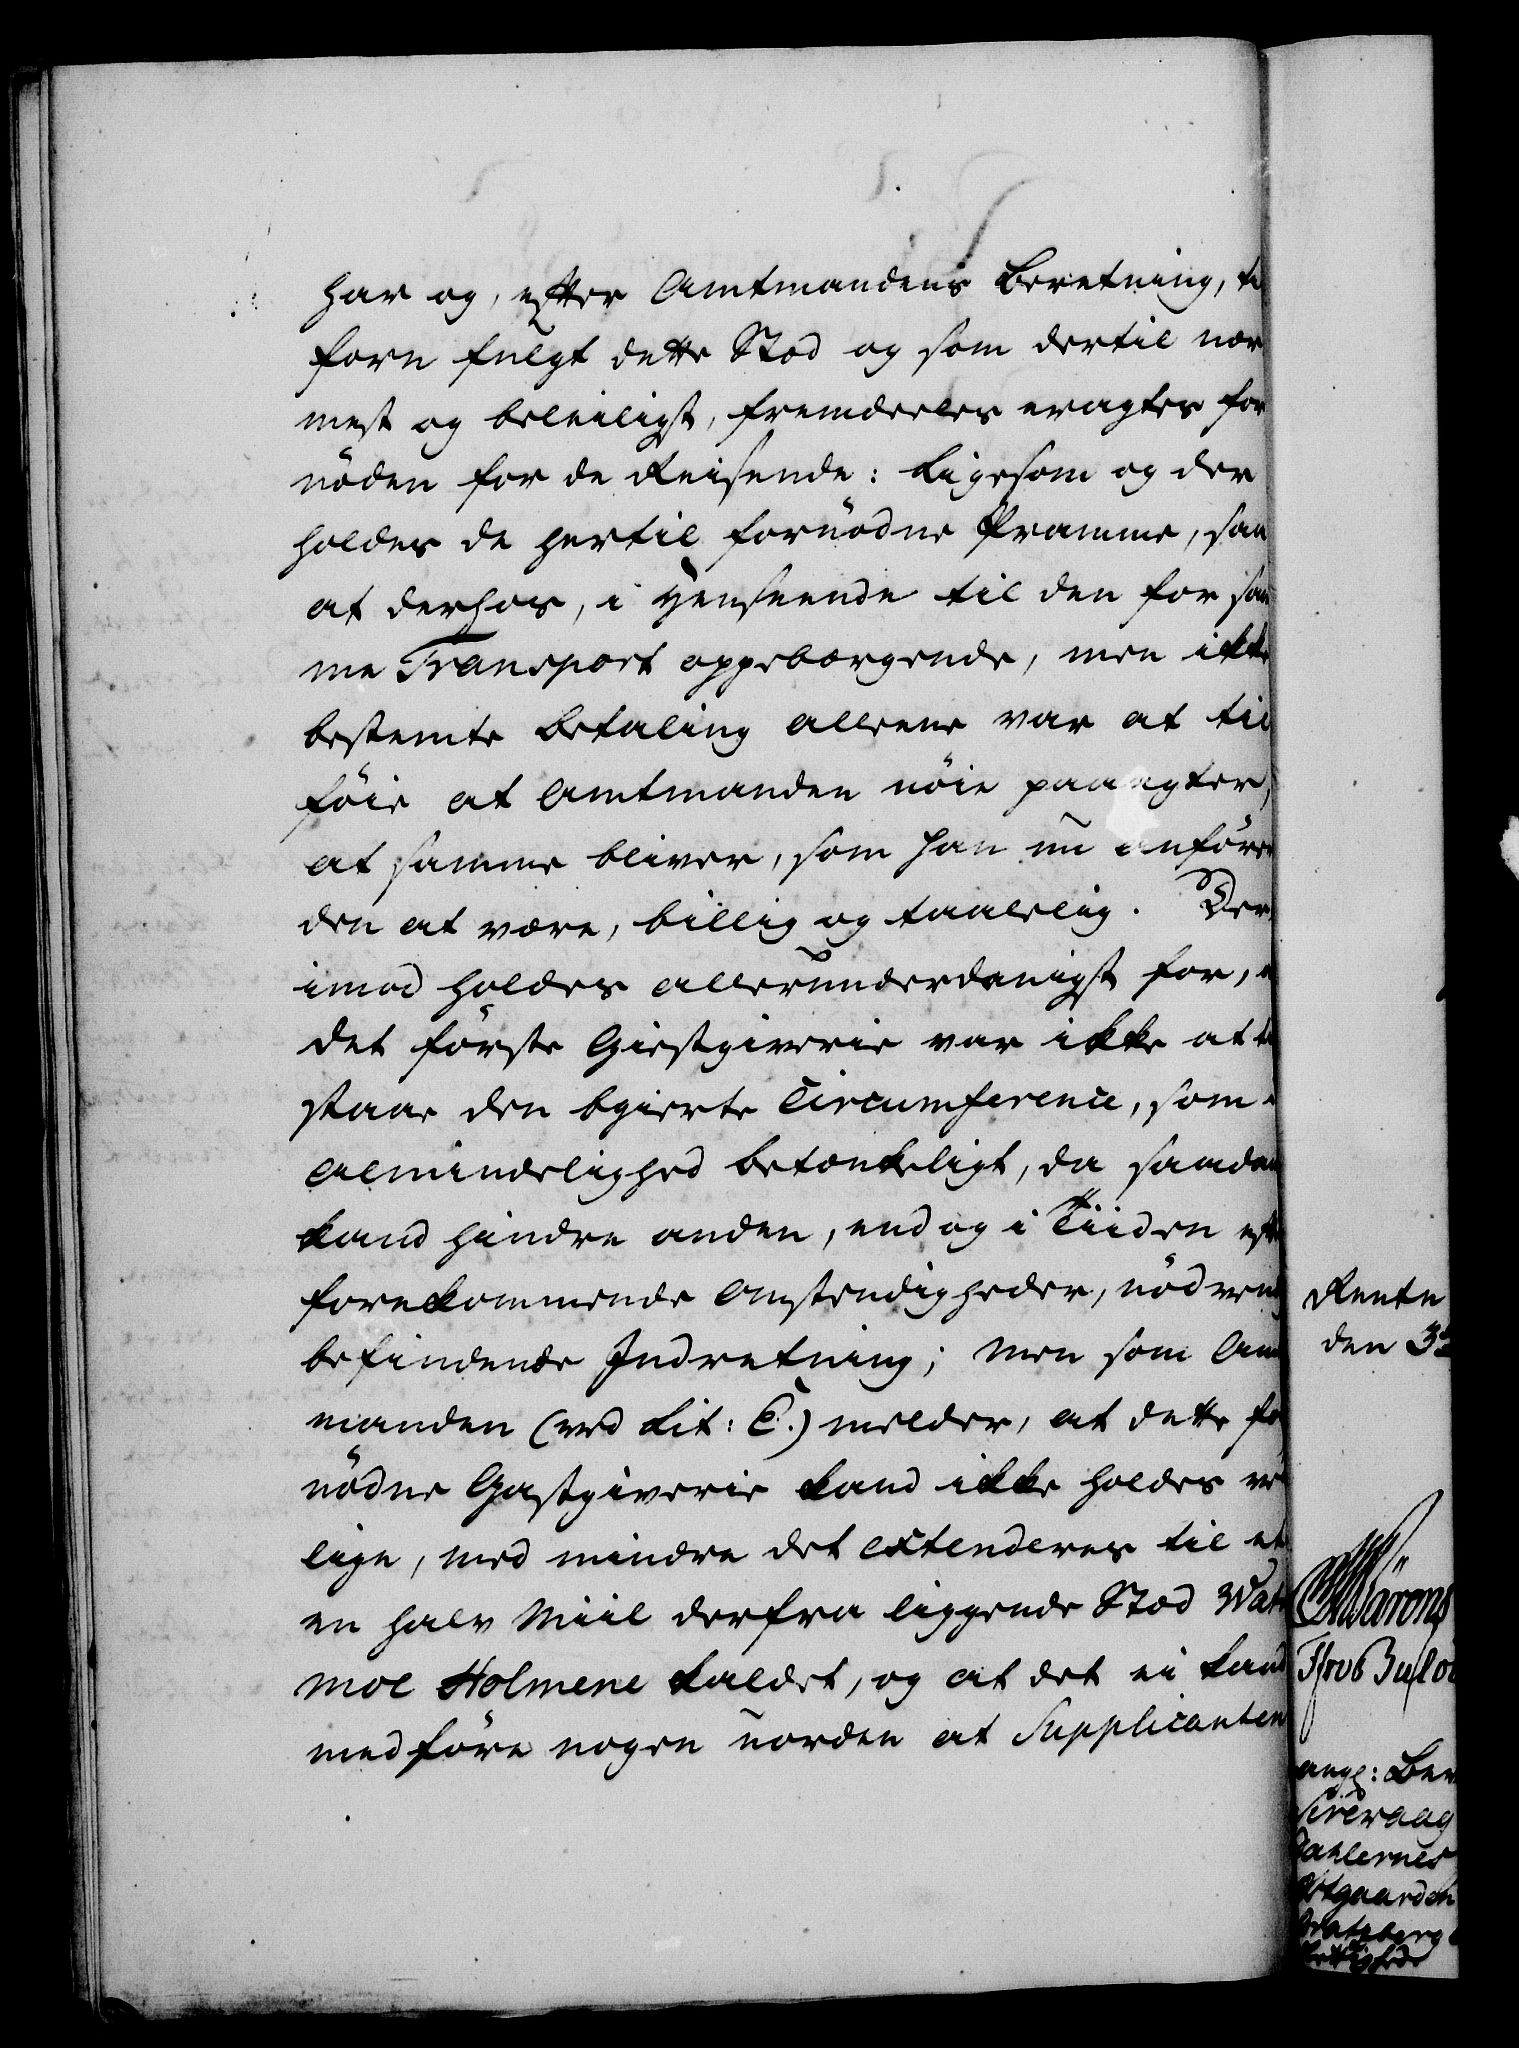 har og, efter Amtmandens Beretning, te
forn fulgt dette Stæd og som dertil nær
mest og beleiligst, fremdeeles eragtes for
nöden for de Reisende: Ligesom og der
holdes de hertil fornödne Pramme, saa
at derhos, i Henseende til den for sam
me Transport oppebærgende, men ikke
bestemte Betaling alleene var at til
föie at Amtmanden nöie paaagter,
at samme bliver, som han nu anfører
den at være, billig og taalelig. Der
imod holdes allerunderdanigst for, a
det förste Giestgiverie var ikke at ti
staae den bgierte Circumference, som i
Almindelighed betænkeligt, da saadan
kand hindre anden, end og i Tiiden eft
forekommende Omstendigheder, nödvend
befindende Indretning; Men som Amt
manden (ved Lit: C.) melder, at dette for
nödne Gastgiverie kand ikke holdes ve
lige, med mindre det extenderes til et
en halv Miil derfra liggende Stæd Wat
moe Holmene kaldet, og at det ei kand
medföre nogen uorden at Supplicanten
Rente
den 3
ang: Ber
Sireraag